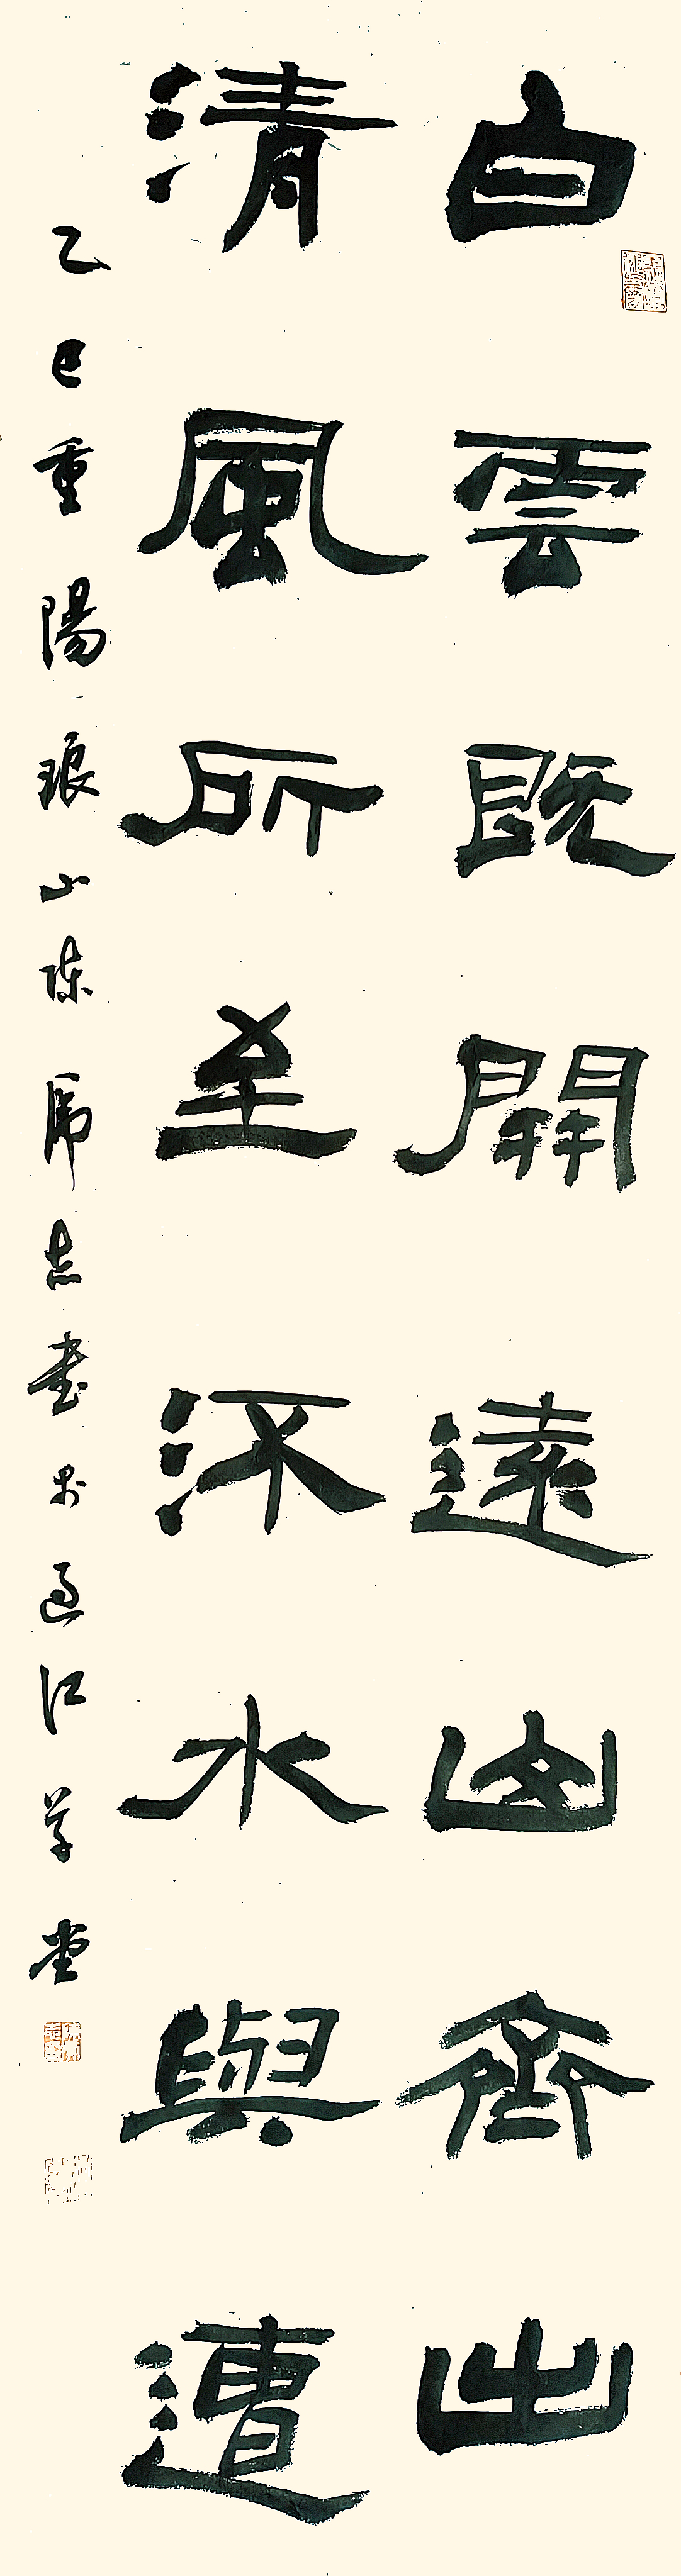 白雲既開遠山齊出
清風所至㳅水與遭
乙巳重陽琅山陳志書於過江草堂